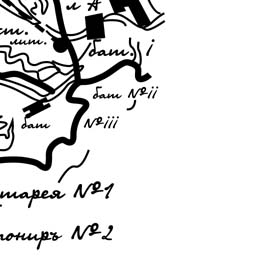 л А
ст.
лит.
бат. i
бат №ii
бат №iii
тарея №1
пониръ №2